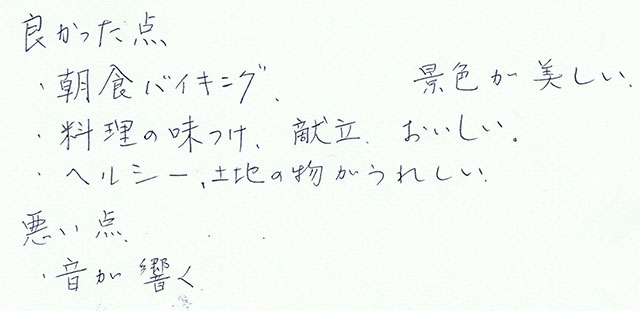 良かった点
・朝食バイキング、 景色が美しい、
・料理の味つけ、献立、おいしい。
・ヘルシー、土地の物がうれしい、
悪い点、
・音が響く、